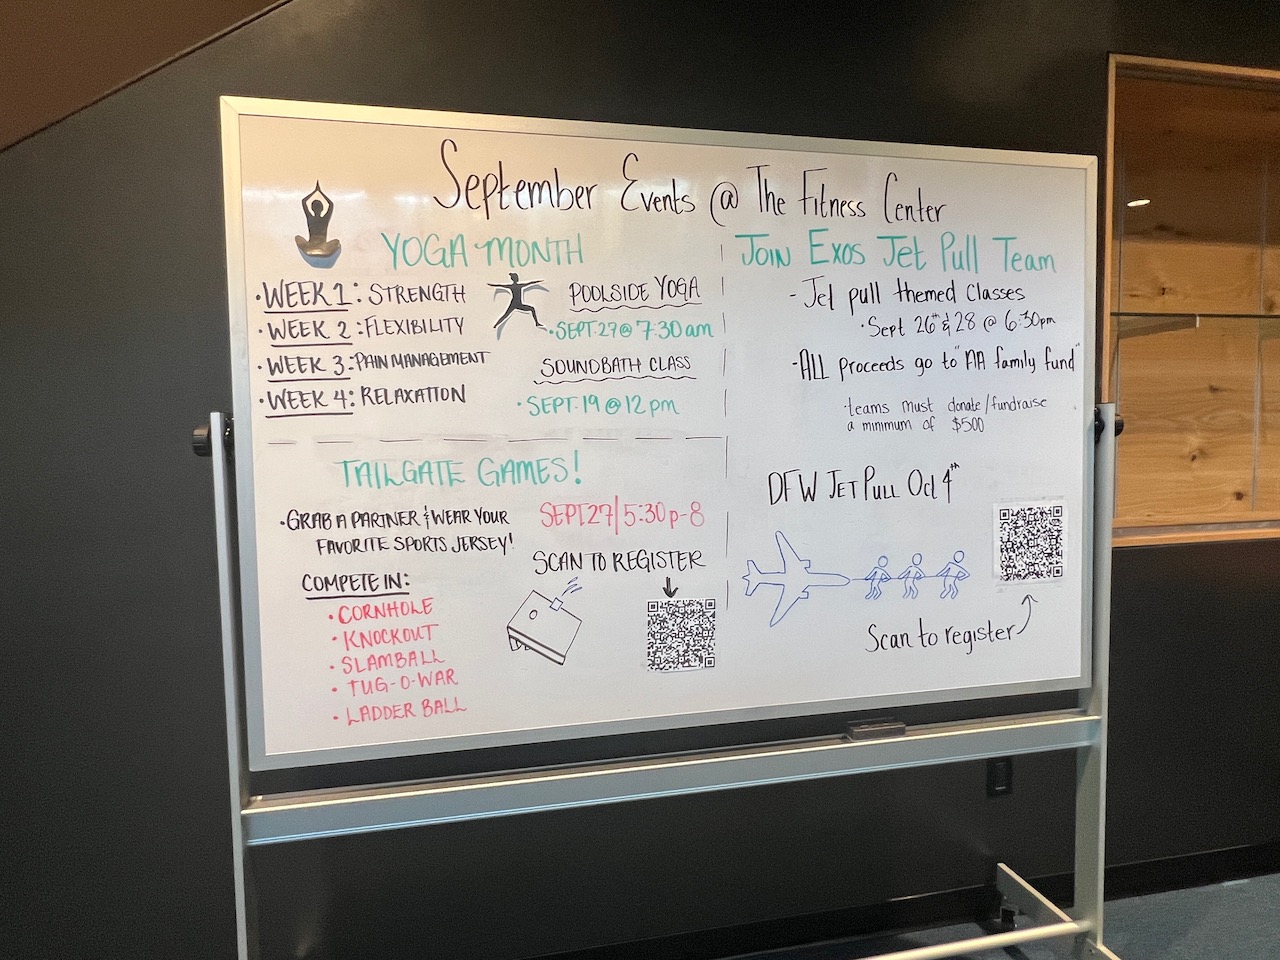 September Events @ The Fitness Center
YOGA MONTH
• WEEK 1: STRENGTH
• WEEK 2: FLEXIBILITY
• WEEK 3: PAIN MANAGEMENT
• WEEK 4: RELAXATION
POOLSIDE YOGA
• SEPT. 27 @ 7:30 am
SOUNDBATH CLASS
• SEPT. 19 @ 12 pm
TAILGATE GAMES!
• GRAB A PARTNER & WEAR YOUR
FAVORITE SPORTS JERSEY!
COMPETE IN:
• CORNHOLE
• KNOCKOUT
• SLAMBALL
• TUG-O-WAR
• LADDER BALL
SEPT. 27 | 5:30 p - 8
SCAN TO REGISTER
JOIN EXOS JET PULL TEAM
- Jet pull themed classes
• Sept 26th & 28 @ 6:30pm
- ALL proceeds go to "AA family fund"
• teams must donate/fundraise
a minimum of $500
DFW JET PULL Oct 4th
Scan to register